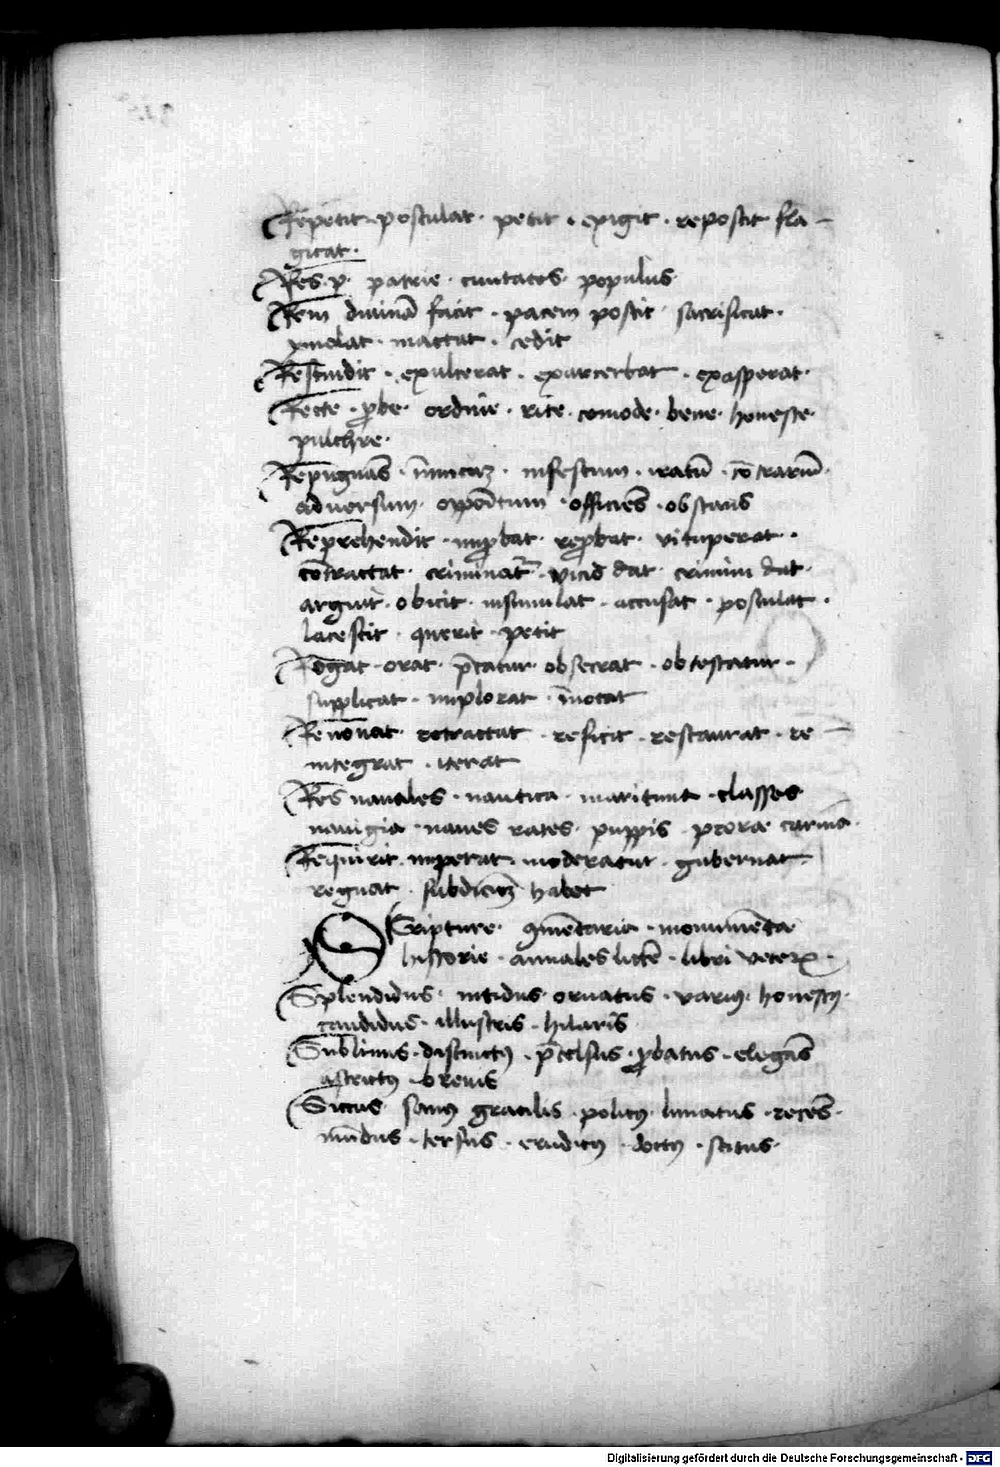 Repetit · postulat · petit · exigit · reposcit fla-
gitat ·
Res · p · patrie · ciuitates · populus
Rem diuinā facit · pacem poscit · sacrificat ·
ymolat · mactat · cedit
Rescindit · exulcerat · exacerbat · exasperat ·
Recte · ꝓbe · ordine · rite · comode · bene · honeste ·
pulchre ·
Repugnās · īimicuꝫ · infestum · iratū · cōtrariū ·
aduersum · opoītum · officiēs · obstans
Reprehendit · imꝓbat · reꝓbat · vituperat ·
cōtractat · criminat᷑ · vicio dat · crimini dat ·
arguit · obicit · insimulat · accusat · postulat ·
lacescit · querit · petit
Rogat · orat · p̄catur · obsecrat · obtestatur ·
supplicat · implorat · īuocat
Renouat · retractat · reficit · restaurat · re-
integrat · iterat
Res nauales · nautica · maritima · classes
nauigia · naues rates · puppis · prorae carina ·
Requirit · imperat · moderatur · gubernat
regnat · habet
SCripture · ꝯmētaria · monumēta
historie · annales · libri veterꝝ ·
Splendidus · nitidus · ornatus · variꝰ · honestꝰ ·
candidus · illustris · hilaris
Sublimis · distinctꝰ · p̄celsus · ꝓbatus · elegās
astrictꝰ · breuis
Siccus · sanꝰ gracilis · politꝰ · limatus · recēs ·
mūdus · tersus · eruditꝰ · doctꝰ · scitus ·
Digitalisierung gefördert durch die Deutsche Forschungsgemeinschaft - DFG